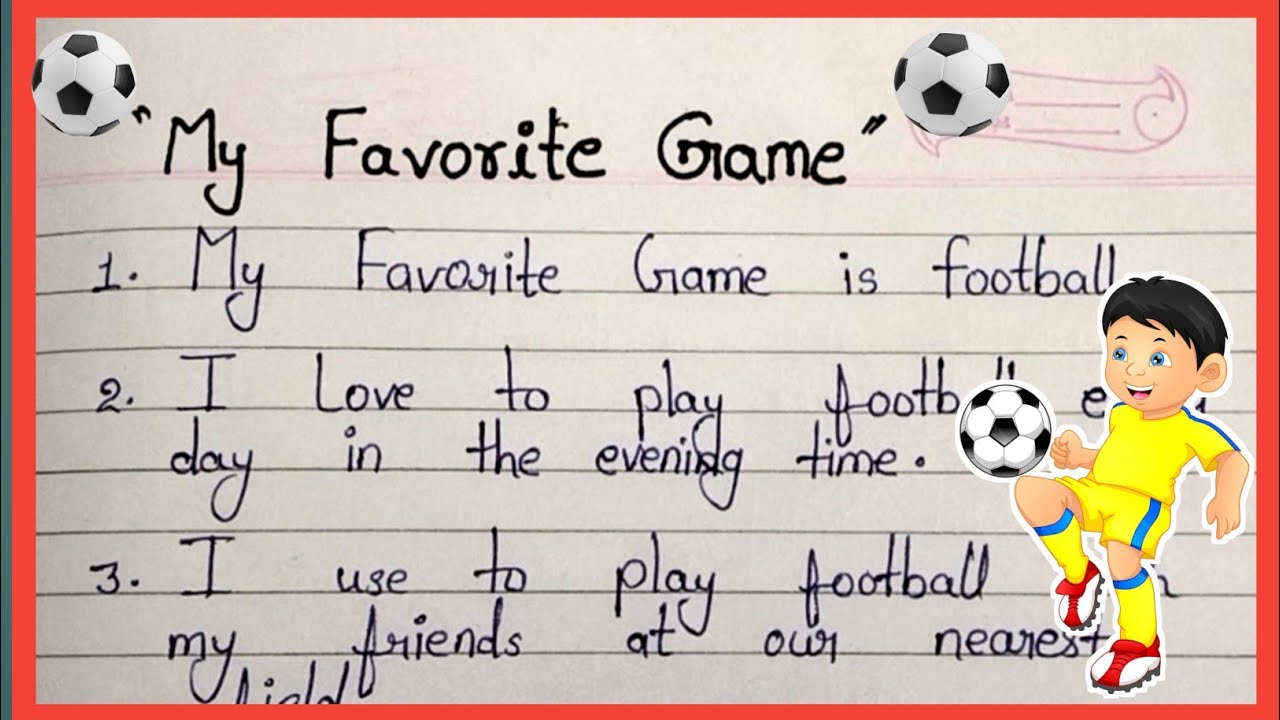 "My Favorite Game"
1. My Favorite Game is football
2. I Love to play
day in the evening time.
3. I use to play football
my friends at our nearest
field